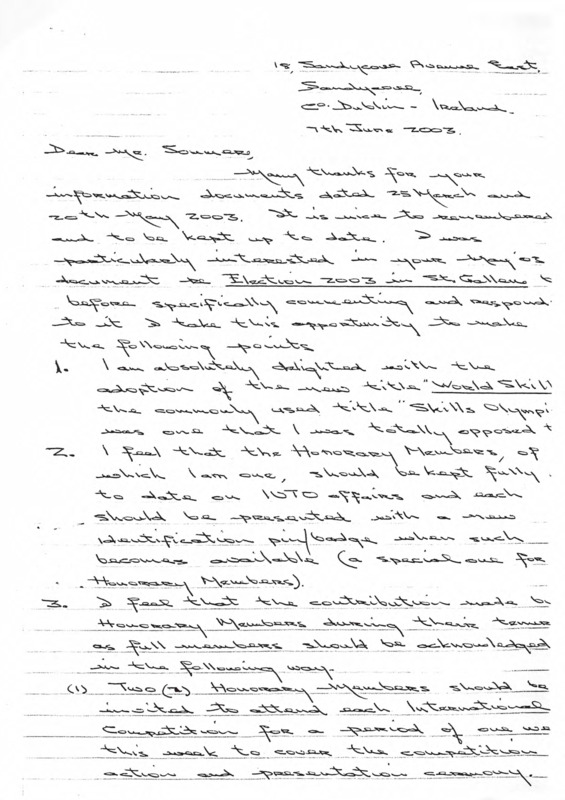 15, Sandycove Avenue East,
Sandycove,
Co. Dublin - Ireland.
7th June 2003.
Dear Mr. Sommer,
Many thanks for your
information documents dated 25 March and
20th May 2003. It is nice to remembered
and to be kept up to date. I was
particularly interested in your May '03
document re Election 2003 in St. Gallen t
before specifically commenting and respond
to it I take this opportunity to make
the following points
1. I am absolutely delighted with the
adoption of the new title "World Skill
the commonly used title "Skills Olympi
was one that I was totally opposed t
2. I feel that the Honorary Members, of
which I am one, should be kept fully
to date on IVTO affairs and each
should be presented with a new
identification pin/badge when such
becomes available (a special one for
Honorary Members).
3. I feel that the contribution made b
Honorary Members during their tenur
as full members should be acknowledged
in the following way.
(1) Two (2) Honorary Members should be
invited to attend each International
Competition for a period of one we
this week to cover the competition
action and presentation ceremony.